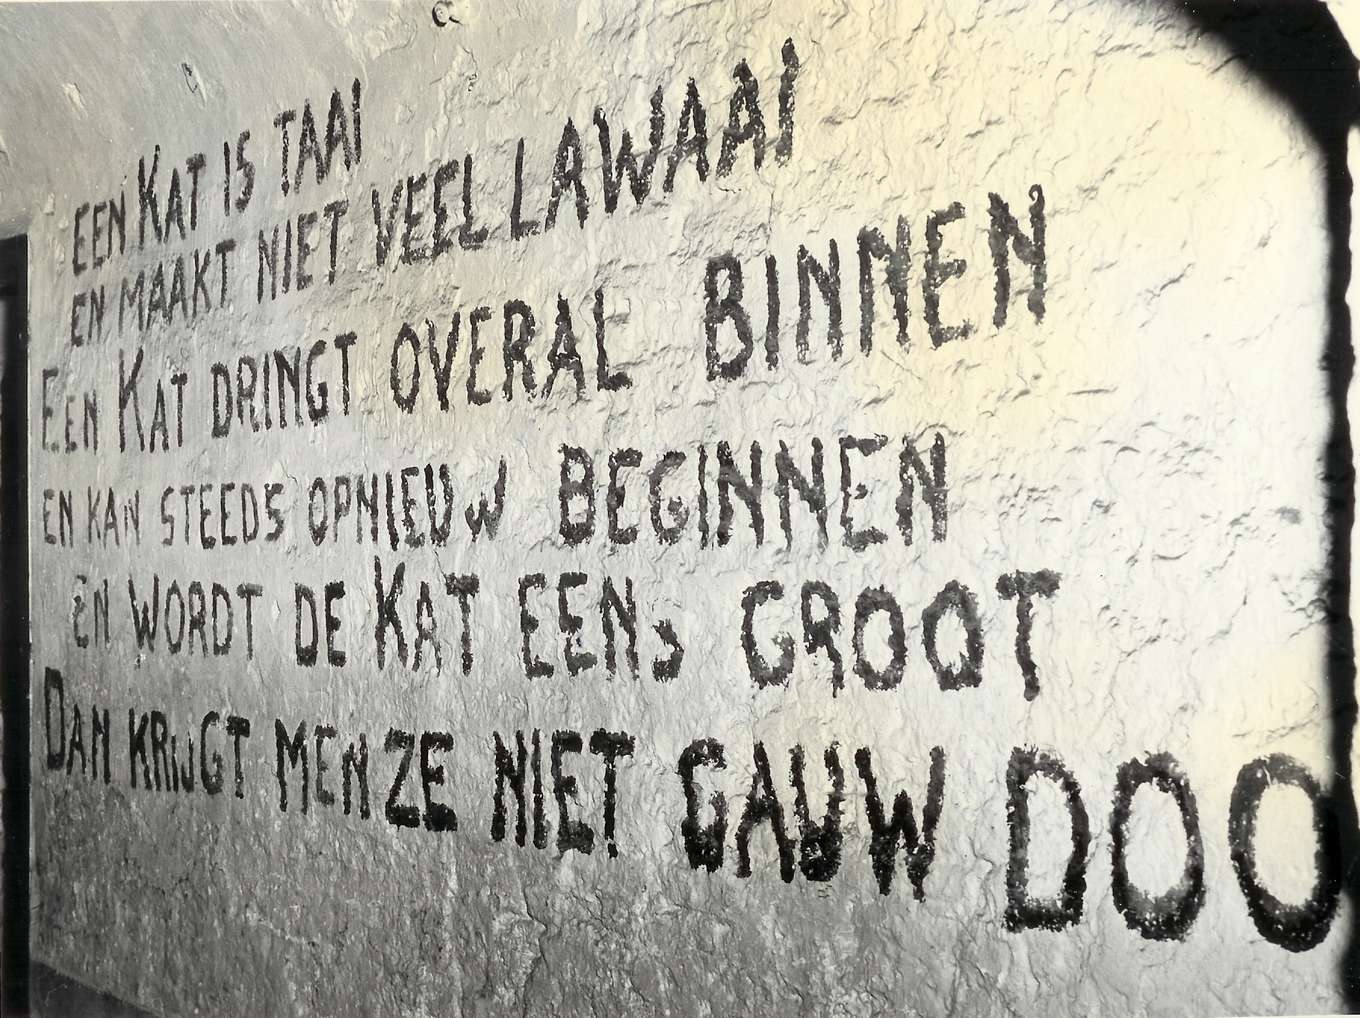 EEN KAT IS TAAI
EN MAAKT NIET VEEL LAWAAI
EEN KAT DRINGT OVERAL BINNEN
EN KAN STEEDS OPNIEUW BEGINNEN
EN WORDT DE KAT EENS GROOT
DAN KRIJGT MEN ZE NIET GAUW DOO